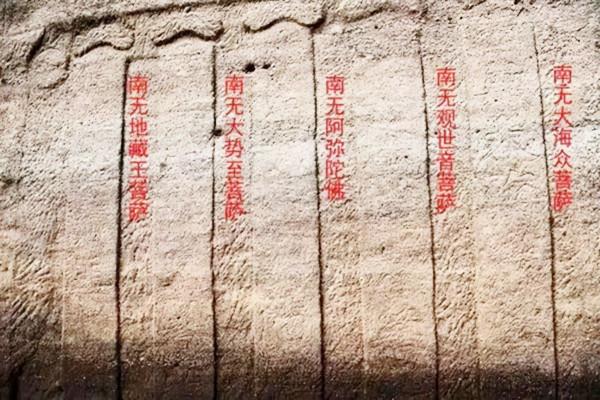 南无大海众菩萨
南无观世音菩萨
南无阿弥陀佛
南无大势至菩萨
南无地藏王菩萨